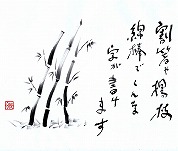 割箸や楊枝
綿棒でこんな
字が書け
ます